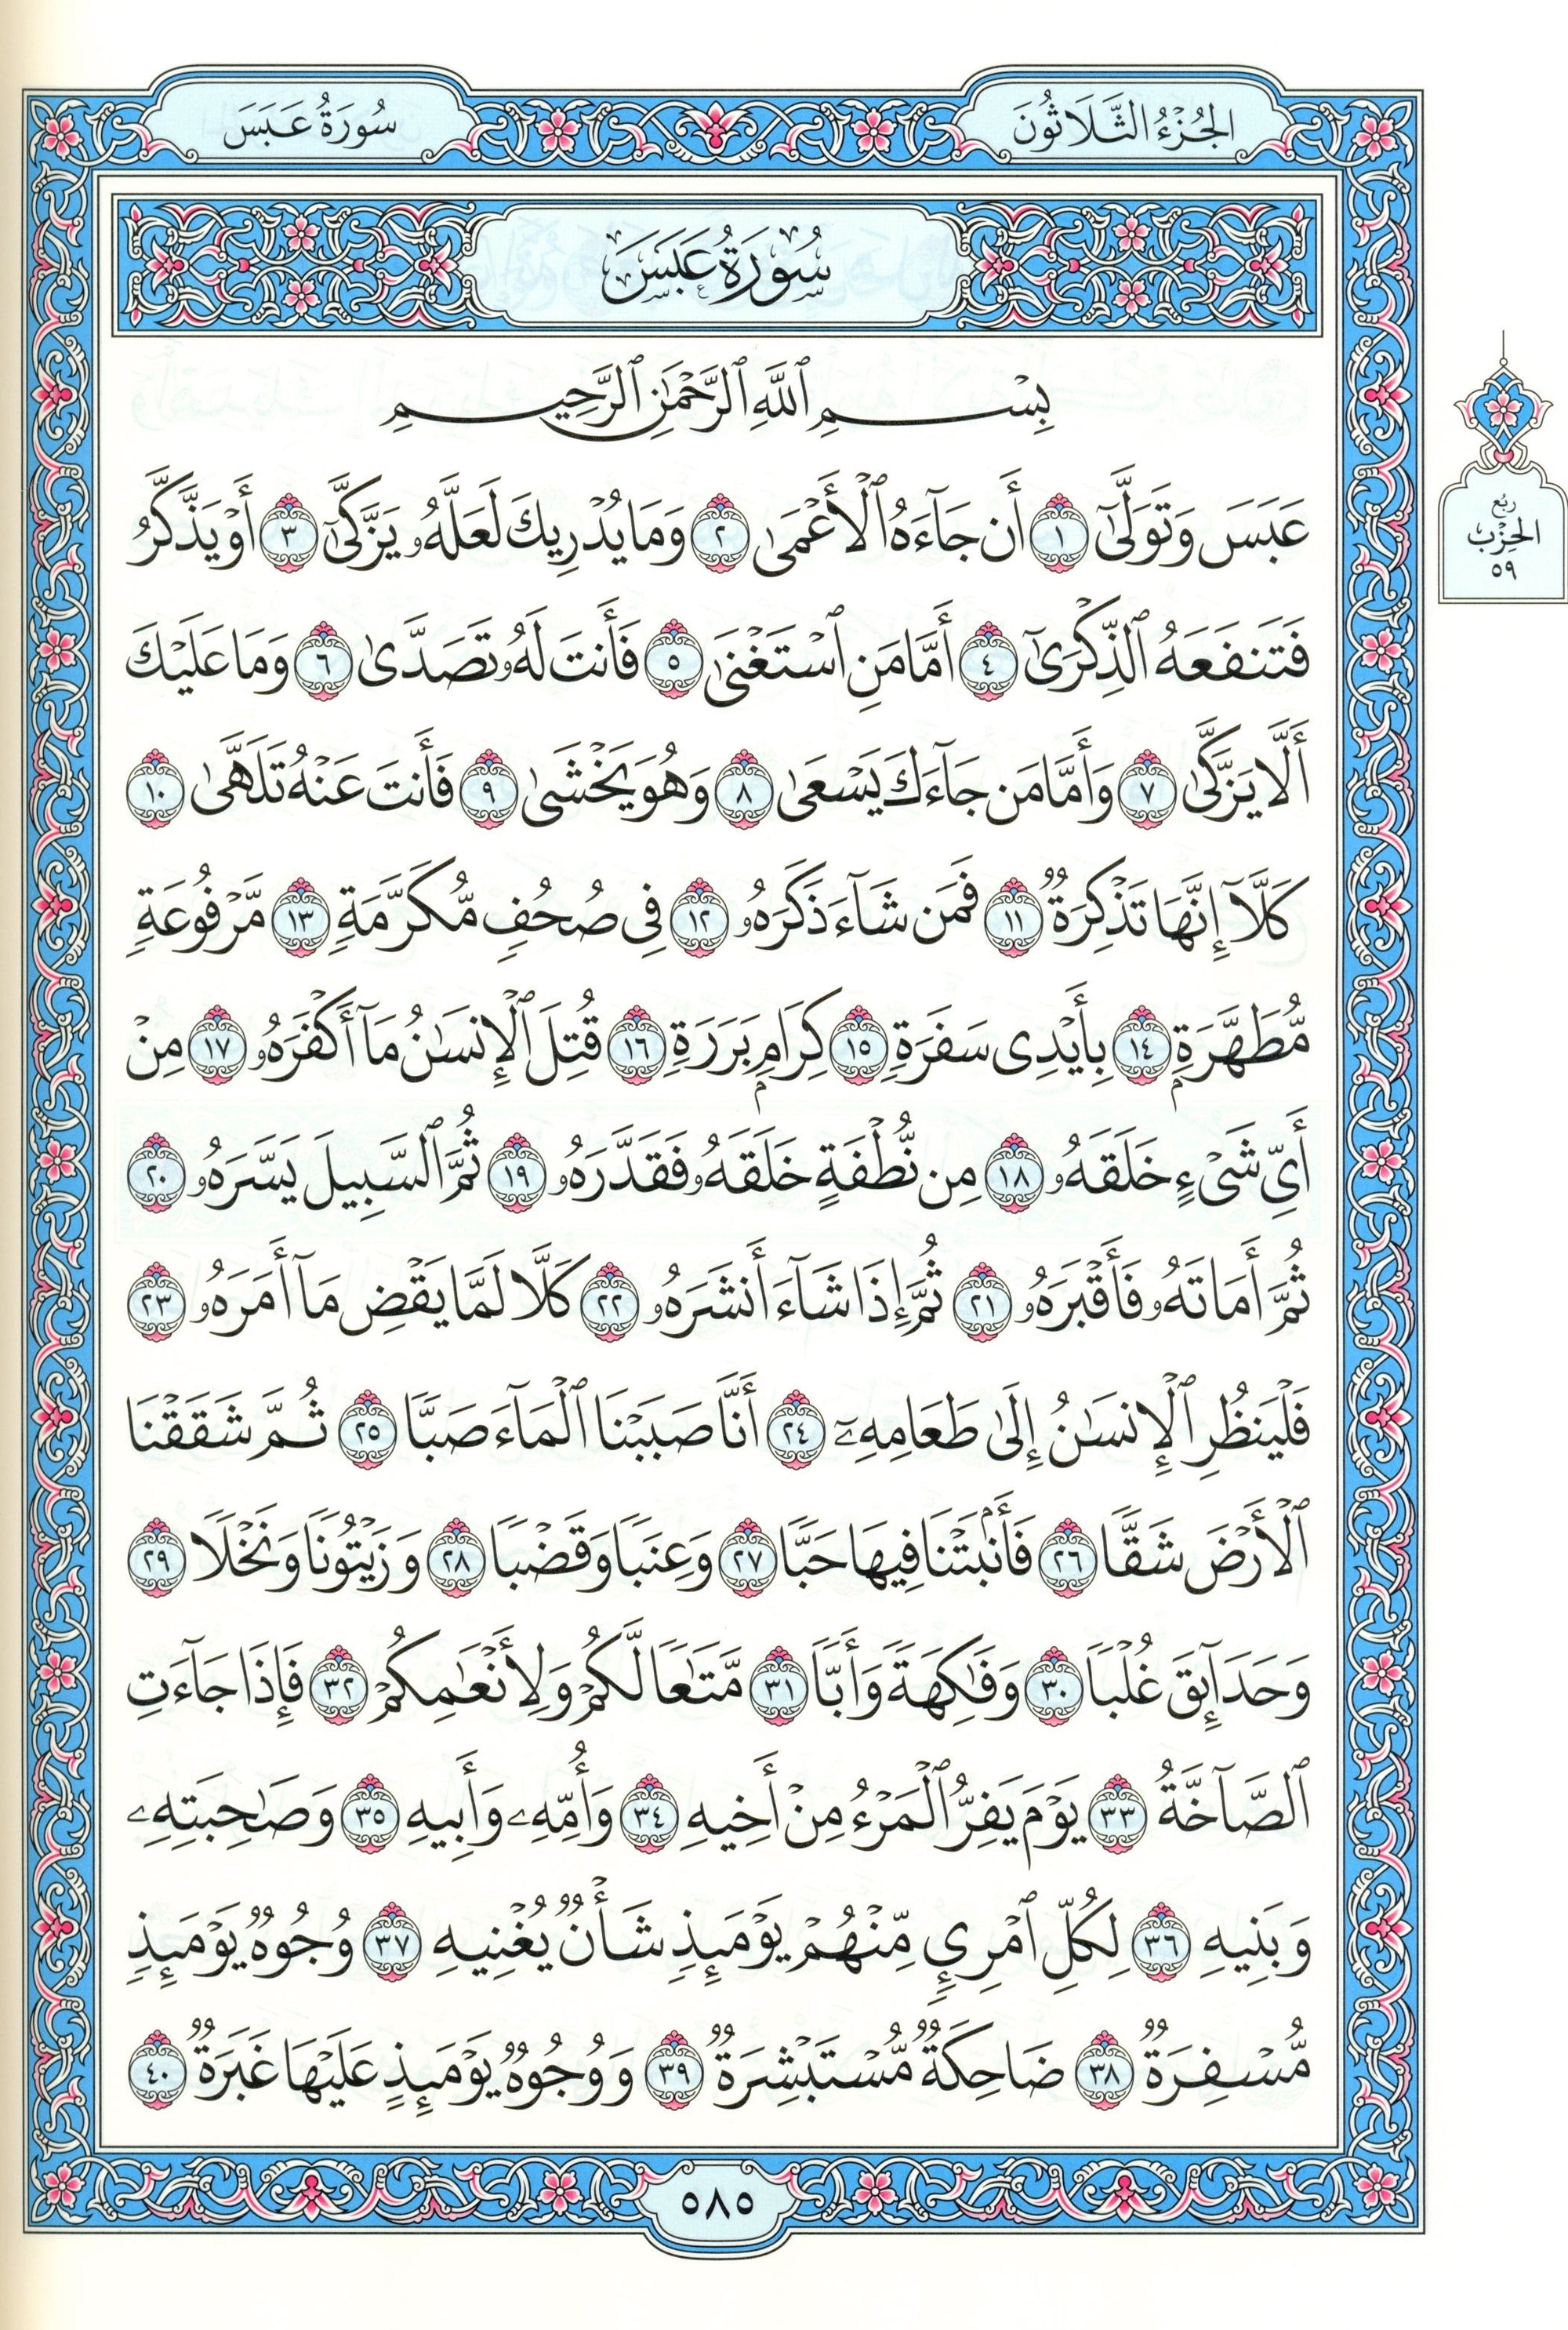 الجُزْءُ الثَّلَاثُونَ
سُورَةُ عَبَسَ
سُورَةُ عَبَسَ
بِسْمِ ٱللَّهِ ٱلرَّحْمَٰنِ ٱلرَّحِيمِ
رُبُع
الحِزْب
٥٩
عَبَسَ وَتَوَلَّىٰٓ ١ أَن جَآءَهُ ٱلْأَعْمَىٰ ٢ وَمَا يُدْرِيكَ لَعَلَّهُۥ يَزَّكَّىٰٓ ٣ أَوْ يَذَّكَّرُ
فَتَنفَعَهُ ٱلذِّكْرَىٰٓ ٤ أَمَّا مَنِ ٱسْتَغْنَىٰ ٥ فَأَنتَ لَهُۥ تَصَدَّىٰ ٦ وَمَا عَلَيْكَ
أَلَّا يَزَّكَّىٰ ٧ وَأَمَّا مَن جَآءَكَ يَسْعَىٰ ٨ وَهُوَ يَخْشَىٰ ٩ فَأَنتَ عَنْهُ تَلَهَّىٰ ١٠
كَلَّآ إِنَّهَا تَذْكِرَةٌ ١١ فَمَن شَآءَ ذَكَرَهُۥ ١٢ فِى صُحُفٍ مُّكَرَّمَةٍ ١٣ مَّرْفُوعَةٍ
مُّطَهَّرَةٍۭ ١٤ بِأَيْدِى سَفَرَةٍ ١٥ كِرَامٍۭ بَرَرَةٍ ١٦ قُتِلَ ٱلْإِنسَٰنُ مَآ أَكْفَرَهُۥ ١٧ مِنْ
أَىِّ شَىْءٍ خَلَقَهُۥ ١٨ مِن نُّطْفَةٍ خَلَقَهُۥ فَقَدَّرَهُۥ ١٩ ثُمَّ ٱلسَّبِيلَ يَسَّرَهُۥ ٢٠
ثُمَّ أَمَاتَهُۥ فَأَقْبَرَهُۥ ٢١ ثُمَّ إِذَا شَآءَ أَنشَرَهُۥ ٢٢ كَلَّا لَمَّا يَقْضِ مَآ أَمَرَهُۥ ٢٣
فَلْيَنظُرِ ٱلْإِنسَٰنُ إِلَىٰ طَعَامِهِۦٓ ٢٤ أَنَّا صَبَبْنَا ٱلْمَآءَ صَبًّا ٢٥ ثُمَّ شَقَقْنَا
ٱلْأَرْضَ شَقًّا ٢٦ فَأَنۢبَتْنَا فِيهَا حَبًّا ٢٧ وَعِنَبًا وَقَضْبًا ٢٨ وَزَيْتُونًا وَنَخْلًا ٢٩
وَحَدَآئِقَ غُلْبًا ٣٠ وَفَٰكِهَةً وَأَبًّا ٣١ مَّتَٰعًا لَّكُمْ وَلِأَنْعَٰمِكُمْ ٣٢ فَإِذَا جَآءَتِ
ٱلصَّآخَّةُ ٣٣ يَوْمَ يَفِرُّ ٱلْمَرْءُ مِنْ أَخِيهِ ٣٤ وَأُمِّهِۦ وَأَبِيهِ ٣٥ وَصَٰحِبَتِهِۦ
وَبَنِيهِ ٣٦ لِكُلِّ ٱمْرِئٍ مِّنْهُمْ يَوْمَئِذٍ شَأْنٌ يُغْنِيهِ ٣٧ وُجُوهٌ يَوْمَئِذٍ
مُّسْفِرَةٌ ٣٨ ضَاحِكَةٌ مُّسْتَبْشِرَةٌ ٣٩ وَوُجُوهٌ يَوْمَئِذٍ عَلَيْهَا غَبَرَةٌ ٤٠
٥٨٥